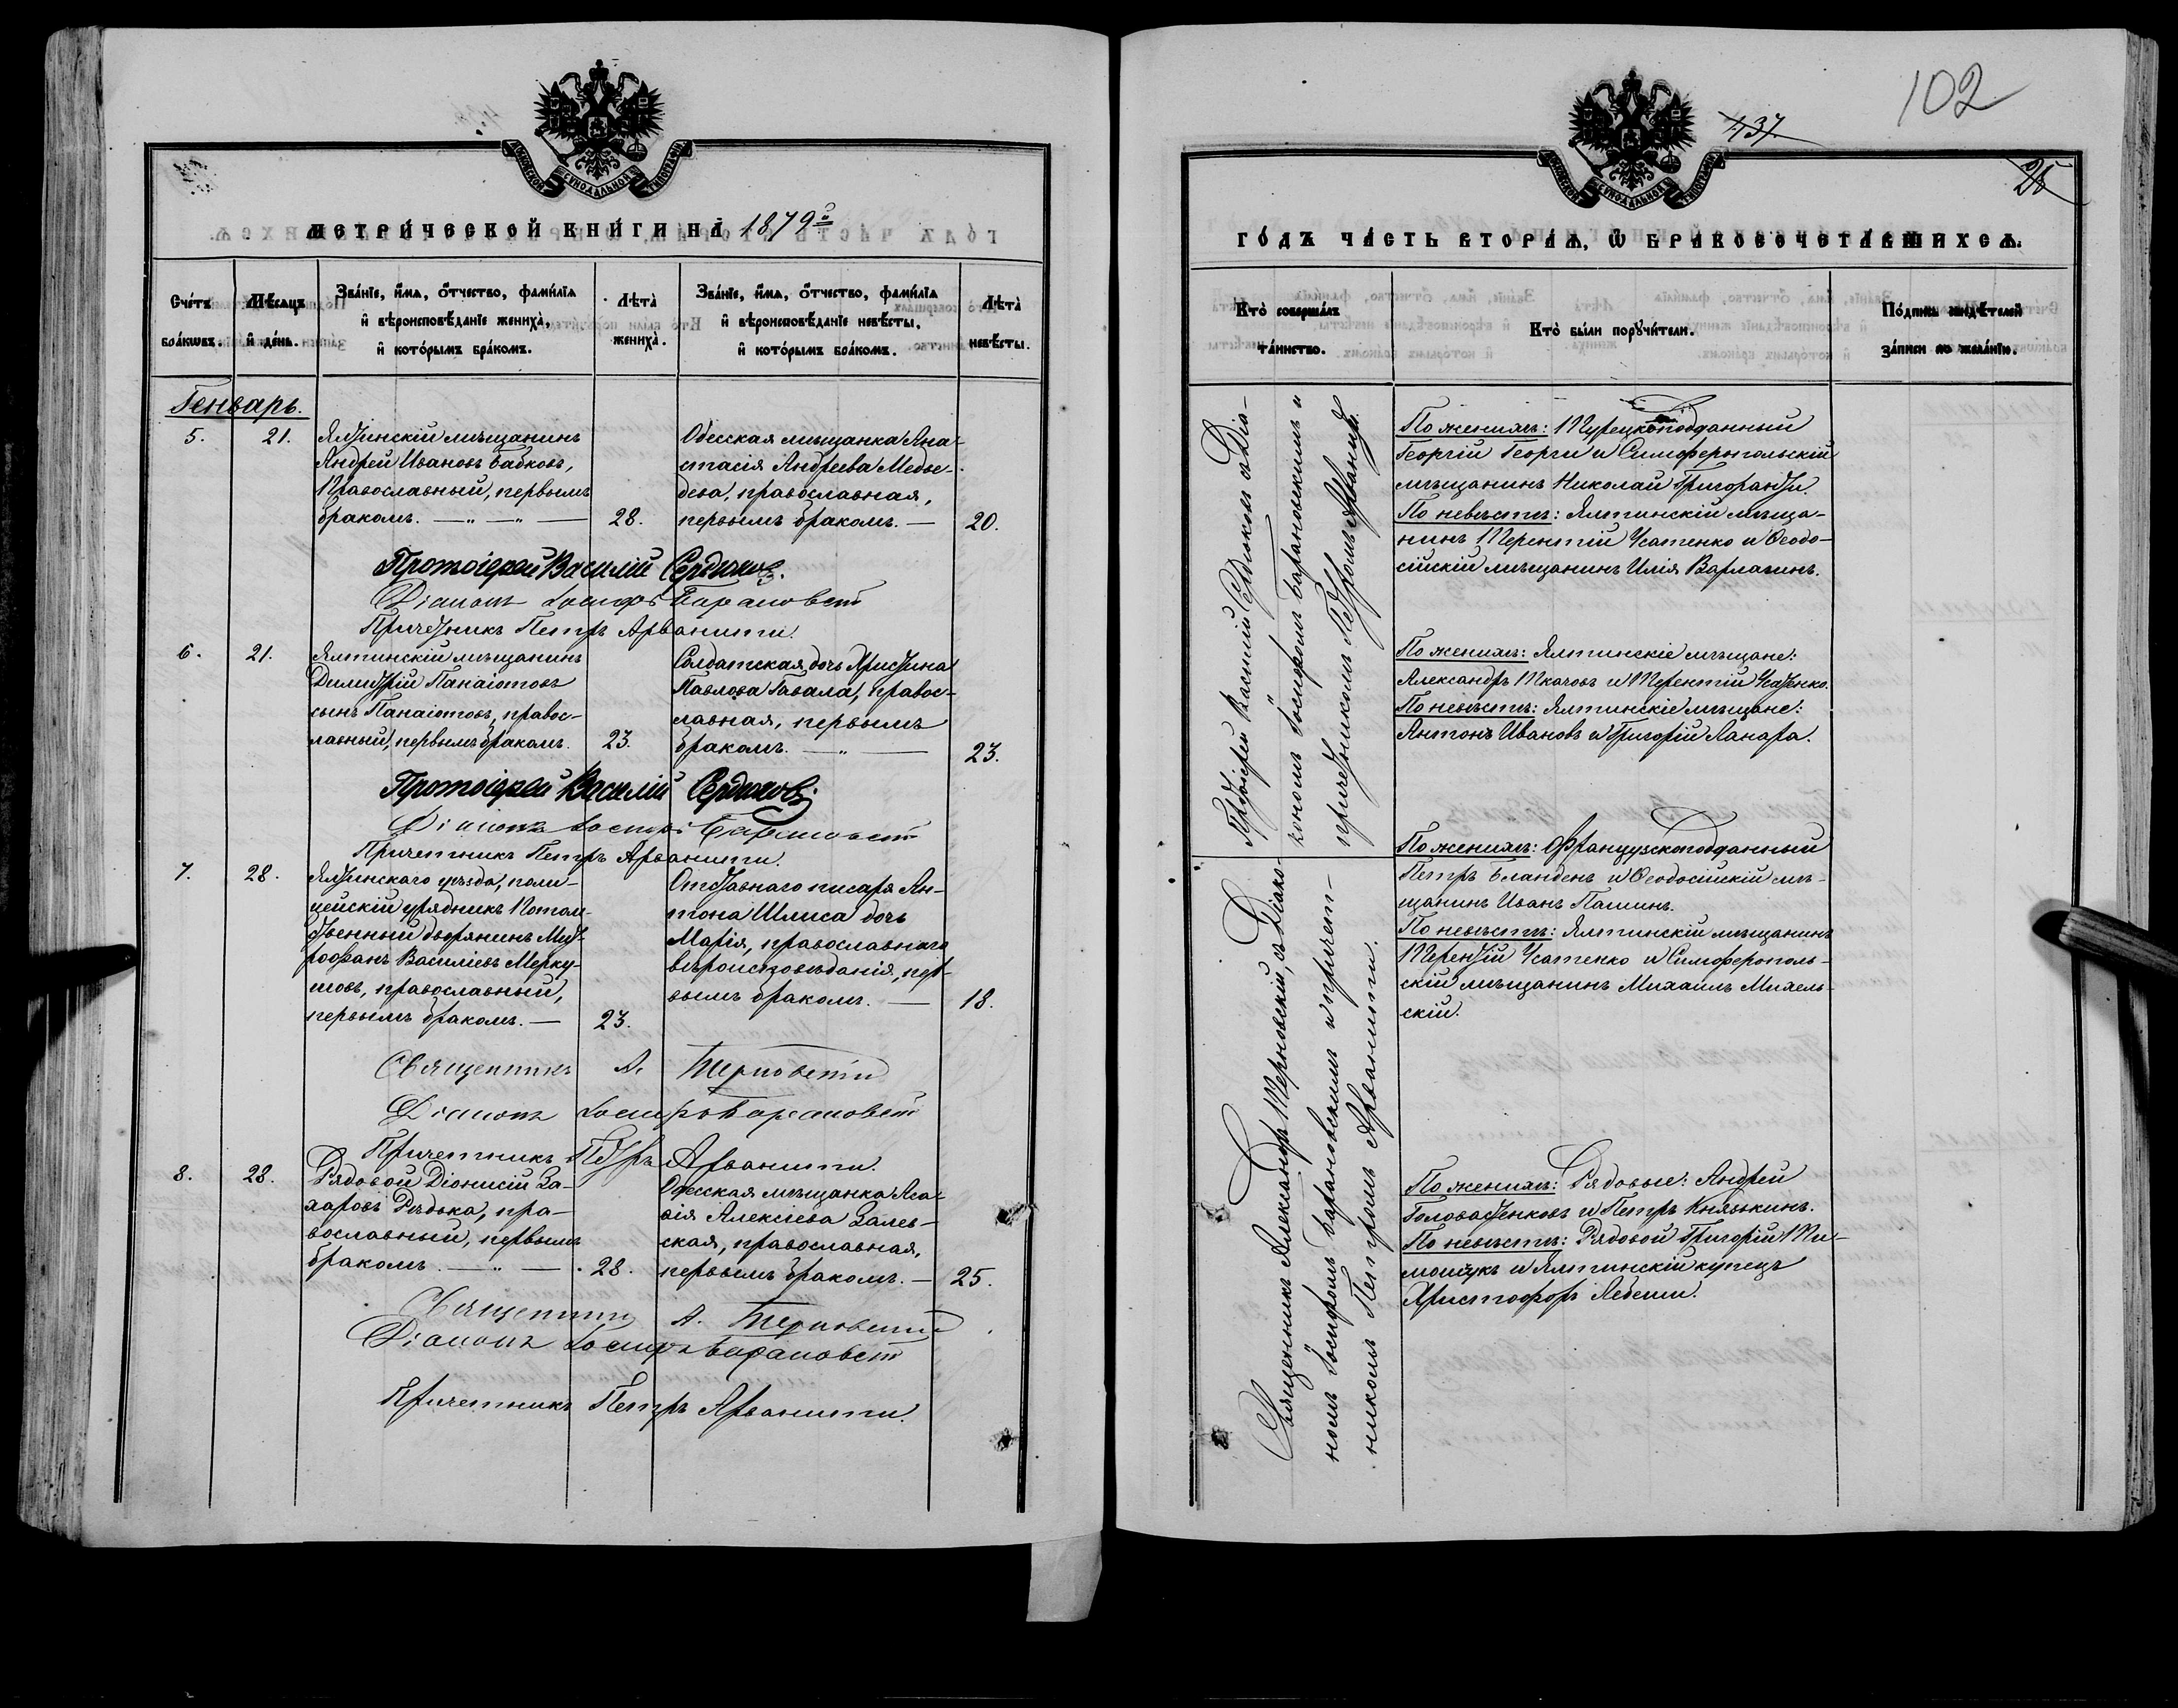 МОСКОВСКОЙ СѴНОДАЛЬНОЙ ТИПОГРАФІИ
МЕТРИ́ЧЕСКОЙ КНИ́ГИ НА̀ 1879й
Сче́тъ бра́кωвъ.
Мѣ́сяцъ и҆ де́нь.
Зва́нїе, и҆́мѧ, ѻ҆́тчество, фами́лїѧ
и҆ вѣроисповѣ́данїе жениха̀,
и҆ кото́рымъ бра́комъ.
Лѣта̀
жениха̀.
Зва́нїе, и҆́мѧ, ѻ҆́тчество, фами́лїѧ
и҆ вѣроисповѣ́данїе невѣ́сты,
и҆ кото́рымъ бра́комъ.
Лѣта̀
невѣ́сты.
Генварь.
5.
21.
Ялтинскій мѣщанинъ
Андрей Ивановъ Бабковъ,
Православный, первымъ
бракомъ. — „ — „ —
28.
Одесская мѣщанка Ана-
стасія Андреева Медве-
дева, православная,
первымъ бракомъ. —
20.
Протоіерей Василій Сердюковъ.
Діаконъ Іосифъ Барановскій
Причетникъ Петръ Арванити.
6.
21.
Ялтинскій мѣщанинъ
Димитрій Панаіотовъ
сынъ Панаіотовъ, правос-
лавный, первымъ бракомъ.
23.
Солдатская дочь Христина
Павлова Гавала, правос-
лавная, первымъ
бракомъ. — „ —
23.
Протоіерей Василій Сердюковъ
Діаконъ Іосифъ Барановскій
Причетникъ Петръ Арванити.
7.
28.
Ялтинскаго уѣзда, поли-
цейскій урядникъ Потом-
ственный дворянинъ Мит-
рофанъ Василіевъ Мерку-
шовъ, православный,
первымъ бракомъ. —
23.
Отставнаго писаря Ан-
тона Шлиса дочь
Марія, православнаго
вѣроисповѣданія, пер-
вымъ бракомъ. —
18.
Священникъ А. Терновскій
Діаконъ Іосифъ Барановскій
Причетникъ Петръ Арванити.
8.
28.
Рядовой Діонисій За-
харовъ Рѣдька, пра-
вославный, первымъ
бракомъ. — „ —
28.
Одесская мѣщанка Ага-
ѳія Алексіева Залев-
ская, православная,
первымъ бракомъ. —
25.
Священникъ А. Терновскій
Діаконъ Іосифъ Барановскій
Причетникъ Петръ Арванити.
102
437.
26
МОСКОВСКОЙ СѴНОДАЛЬНОЙ ТИПОГРАФІИ
ГО́ДЪ ЧА́СТЬ ВТОРА́Ѧ, Ѡ҆ БРАКОСОЧЕТА́ВШИХСѦ.
Кто̀ соверша́лъ
та́инство.
Кто̀ бы́ли порꙋчи́тели.
По́дпись свидѣ́телей
за́писи по жела́нїю.
Протоіерей Василій Сердюковъ съ Діа-
кономъ Іосифомъ Барановскимъ и
причетникомъ Петромъ Арванити.
По женихѣ: Турецкоподданный
Георгій Георги и Симферопольскій
мѣщанинъ Николай Григоранди.
По невѣстѣ: Ялтинскій мѣща-
нинъ Терентій Усатенко и Ѳеодо-
сійскій мѣщанинъ Илія Варлагинъ.
По женихѣ: Ялтинскіе мѣщане:
Александръ Ткачовъ и Терентій Усатенко.
По невѣстѣ: Ялтинскіе мѣщане:
Антонъ Ивановъ и Григорій Ланара.
Священникъ Александръ Терновскій, съ Діако-
номъ Іосифомъ Барановскимъ и причет-
никомъ Петромъ Арванити.
По женихѣ: Французскоподданный
Петръ Бланденъ и Ѳеодосійскій мѣ-
щанинъ Иванъ Пашинъ.
По невѣстѣ: Ялтинскій мѣщанинъ
Терентій Усатенко и Симферополь-
скій мѣщанинъ Михаилъ Михель-
скій.
По женихѣ: Рядовые: Андрей
Головатенковъ и Петръ Князькинъ.
По невѣстѣ: Рядовой Григорій Ти-
мощукъ и Ялтинскій купецъ
Христофоръ Лебеши.